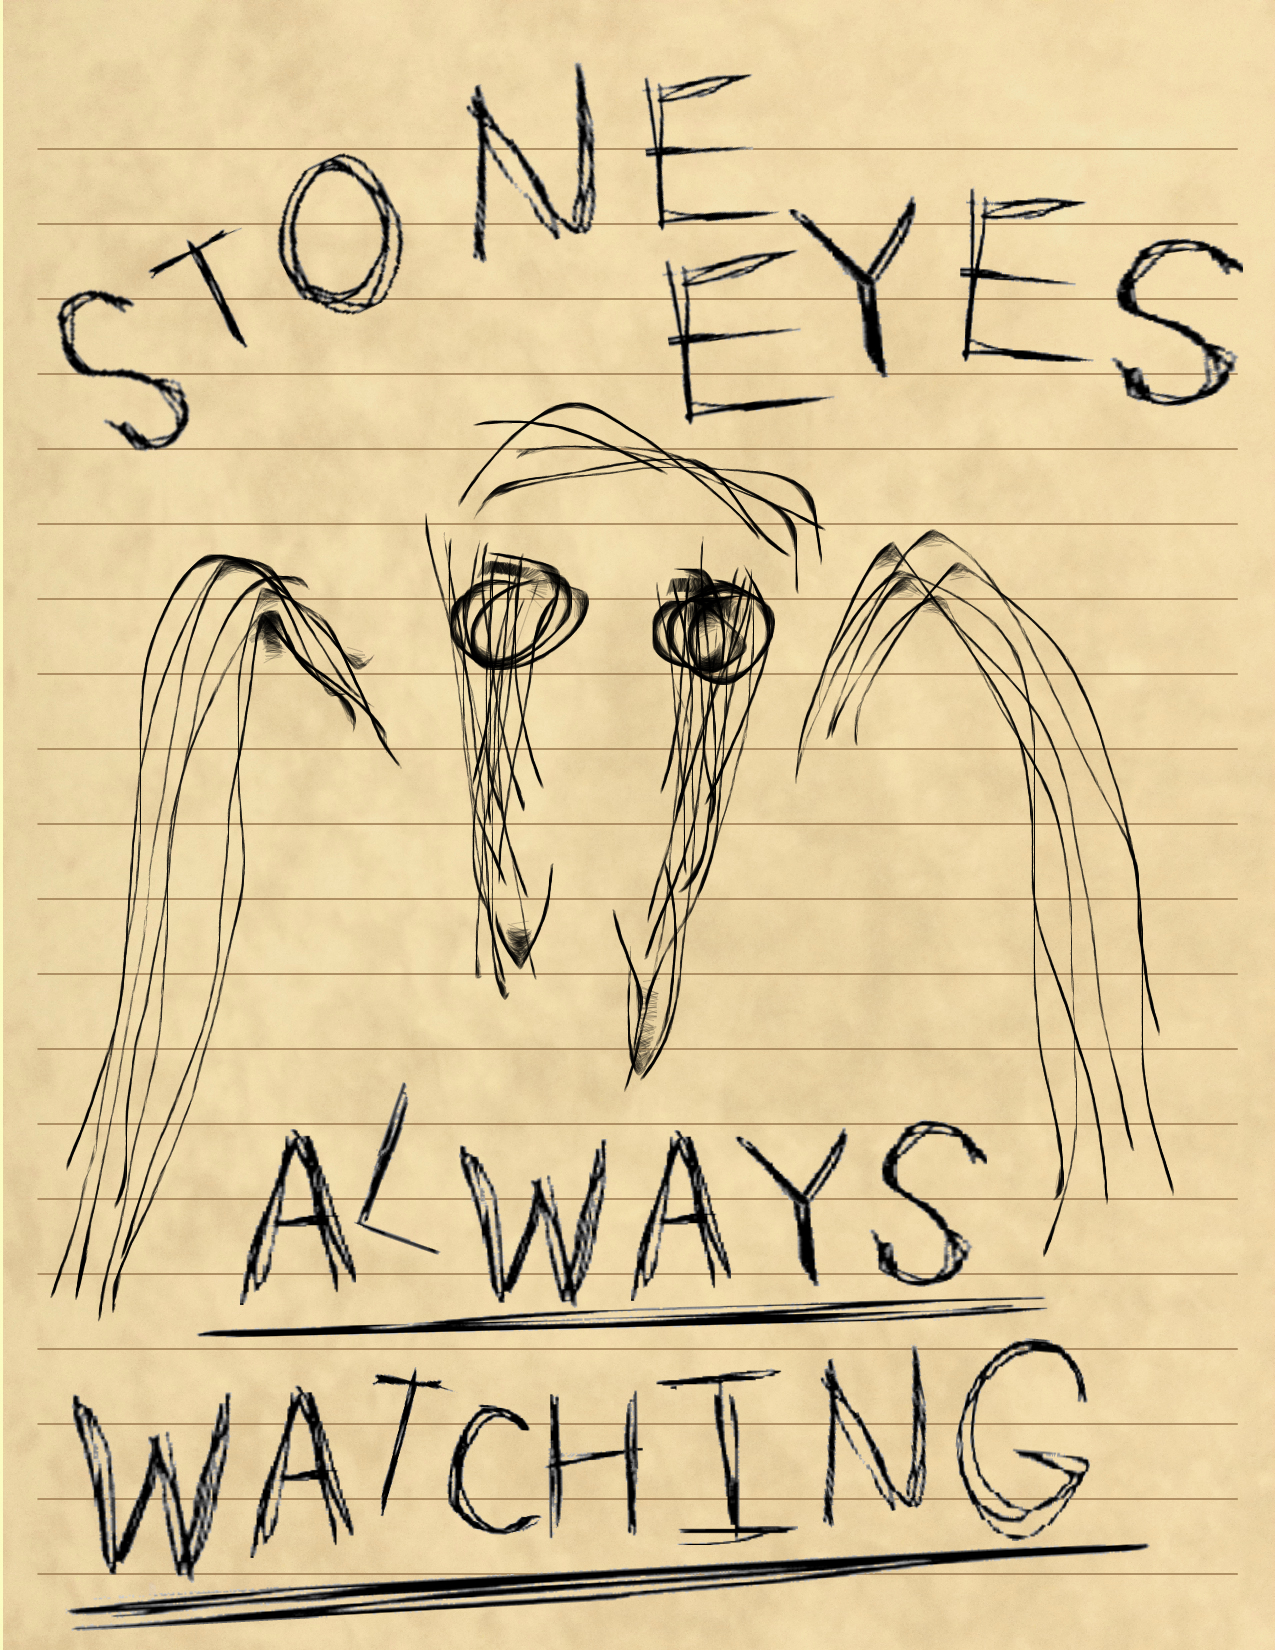 STONE
EYES
ALWAYS
WATCHING